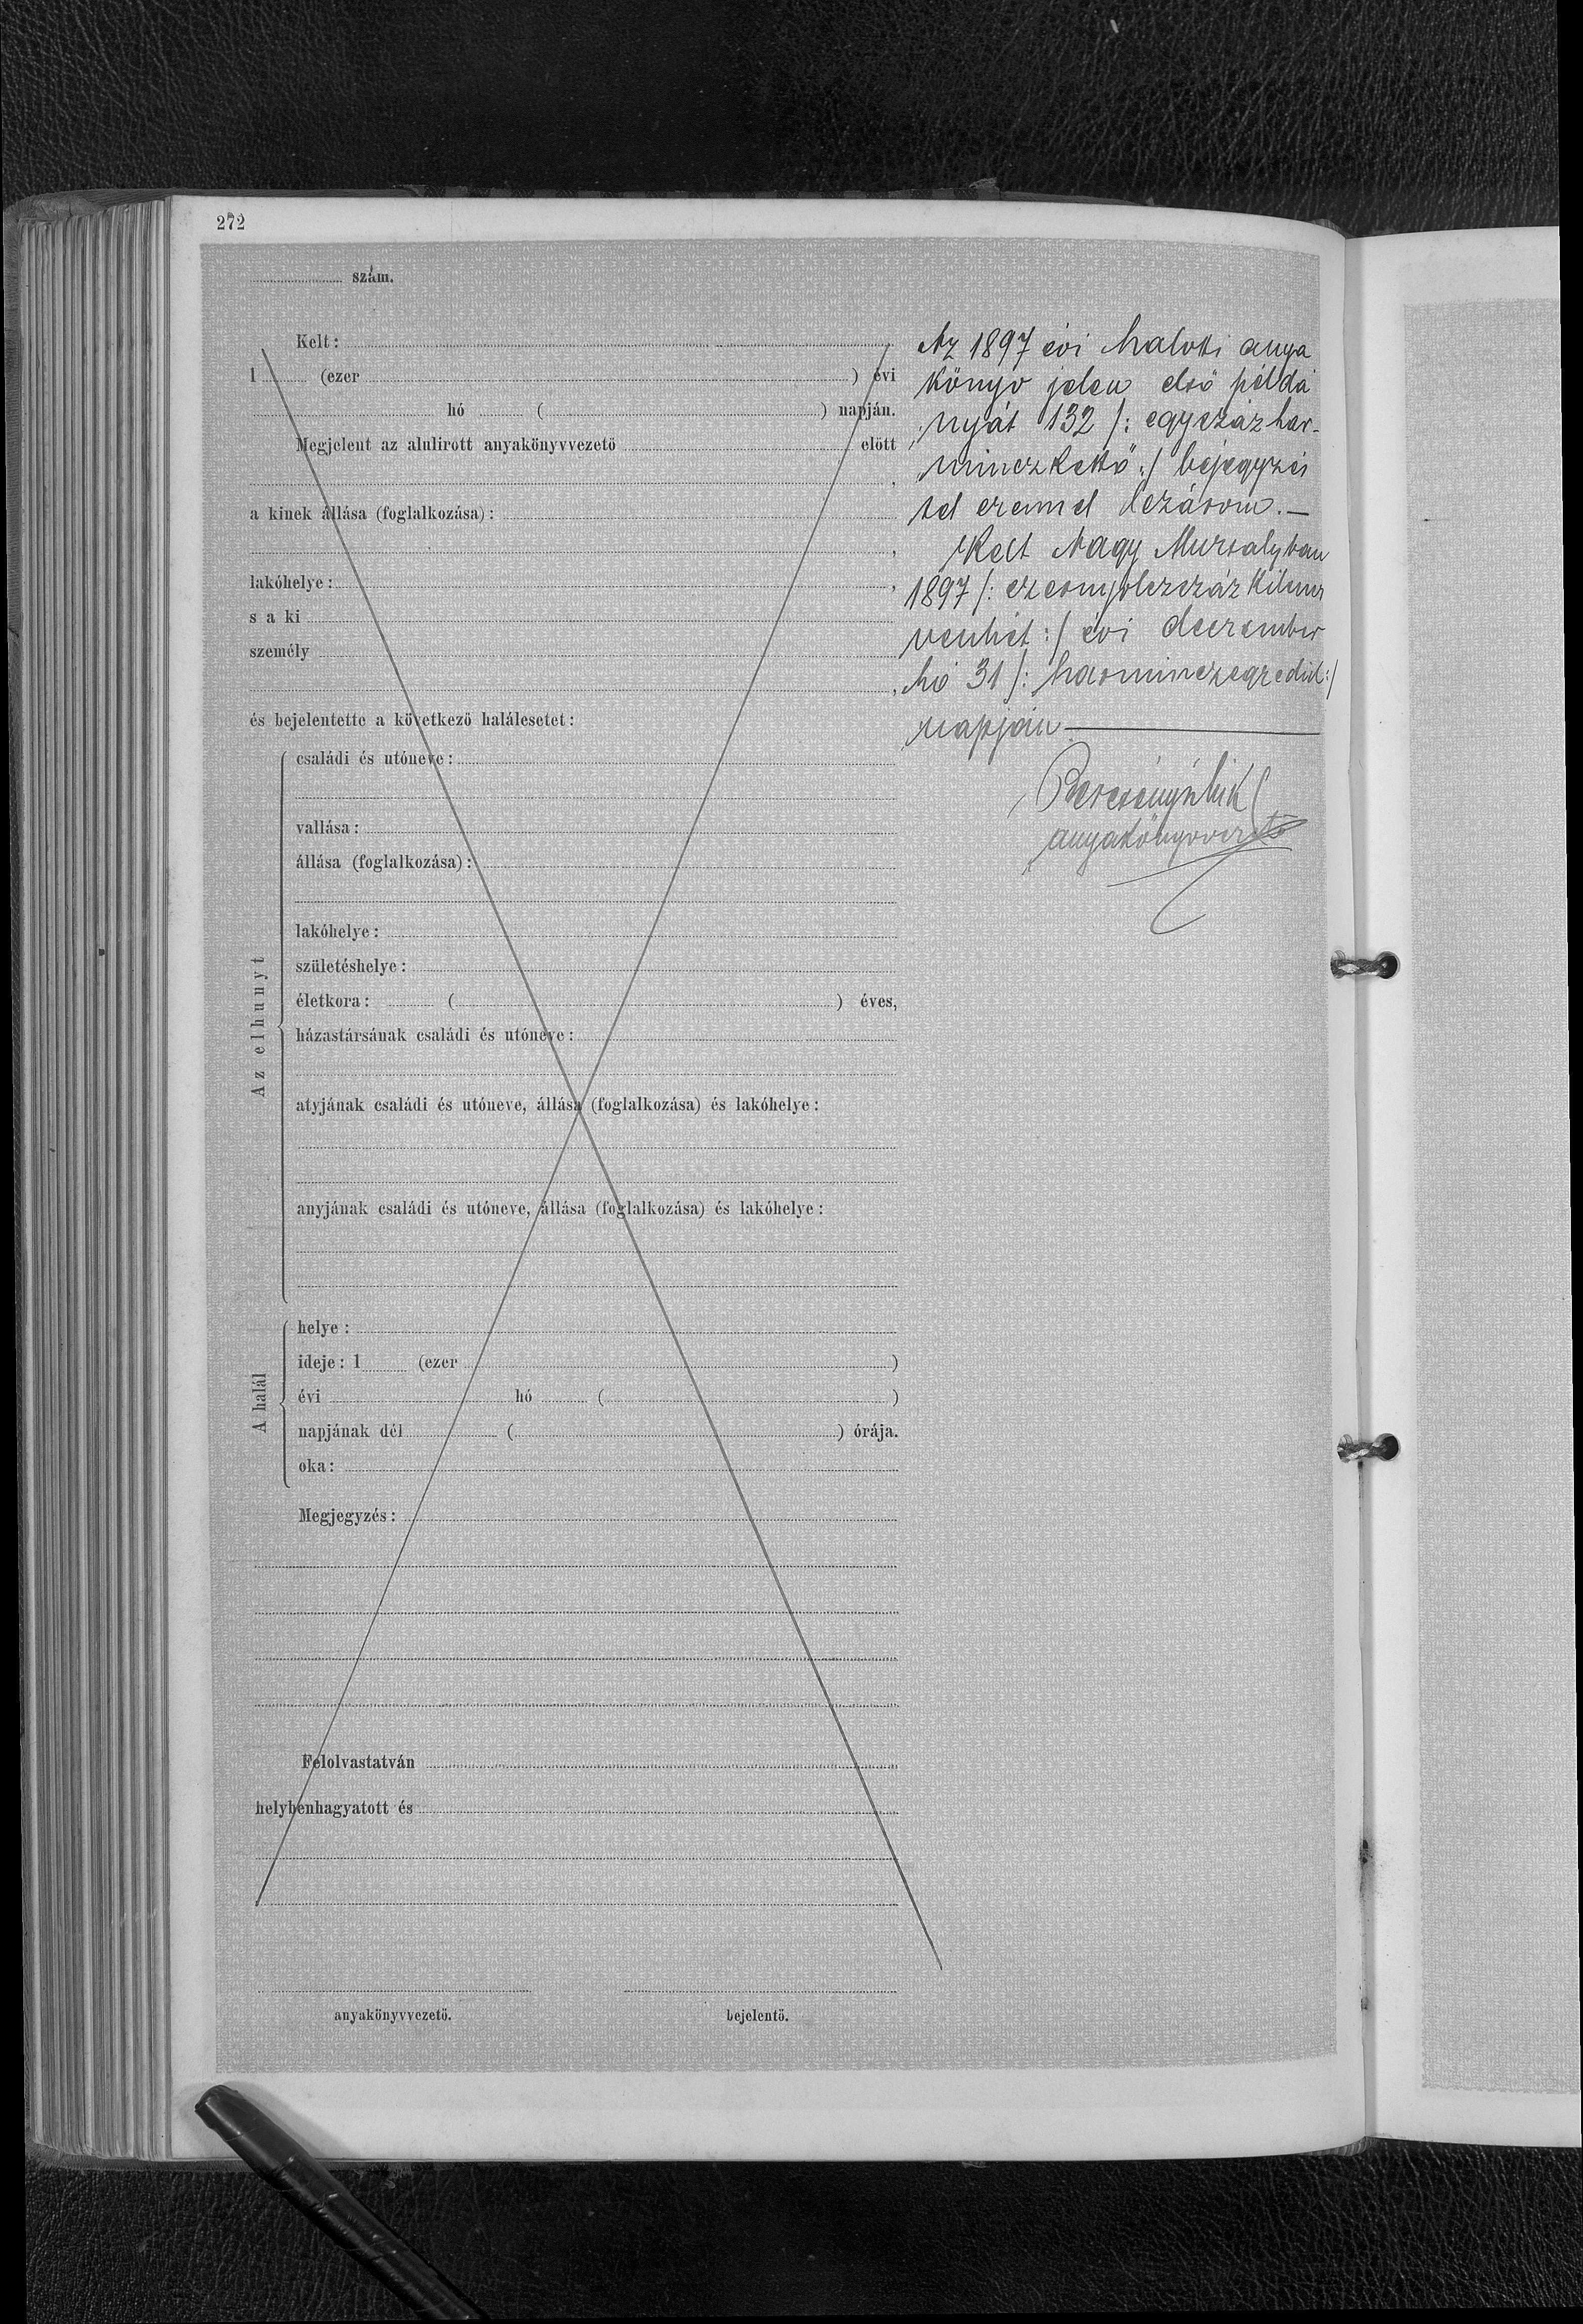 272
szám.
Kelt:
1 (ezer ) évi
hó ( ) napján.
Megjelent az alulirott anyakönyvvezető előtt
,
a kinek állása (foglalkozása):
,
lakóhelye: ,
s a ki
személy
,
és bejelentette a következő halálesetet:
Az elhunyt
családi és utóneve:
vallása:
állása (foglalkozása):
lakóhelye:
születéshelye:
életkora: ( ) éves,
házastársának családi és utóneve:
atyjának családi és utóneve, állása (foglalkozása) és lakóhelye:
anyjának családi és utóneve, állása (foglalkozása) és lakóhelye:
A halál
helye:
ideje: 1 (ezer )
évi hó ( )
napjának dél ( ) órája.
oka:
Megjegyzés:
Felolvastatván
helybenhagyatott és
anyakönyvvezető.
bejelentő.
Az 1897 évi halotti anya
könyv jelen első példá
nyát 132 /: egyszázhar-
minczkettő :/ bejegyzés
sel ezennel lezárom.—
Kelt Nagy Muzsalyban
1897 /: ezernyolczszázkilencz
venhét :/ évi deczember
hó 31 /: harminczegyedik :/
napján
anyakönyvvezető